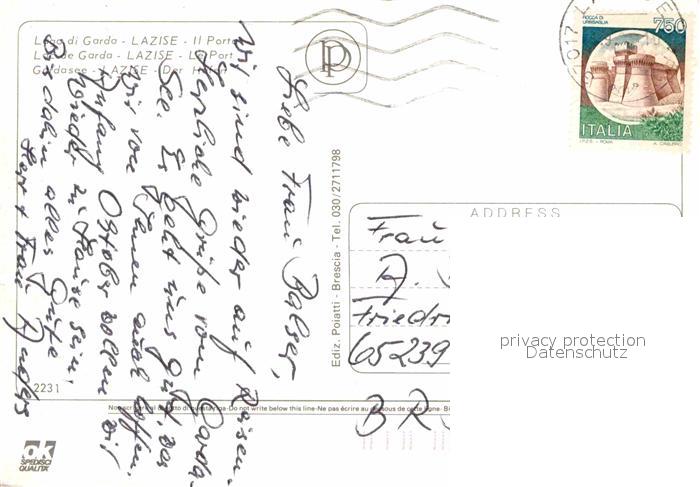 Lago di Garda - LAZISE - Il Porto
Lac de Garda - LAZISE - Le Port
Gardasee - LAZISE - Der Hafen
P
750
ROCCA DI URBISAGLIA
ITALIA
I.P.Z.S. - ROMA
Liebe Frau Balser,
Wir sind wieder auf Reisen.
Herzliche Grüße vom Garda-
See. Es geht uns gut, das
wir von Ihnen auch hoffen.
Anfang Oktober wollen wir
wieder zu Hause sein.
Bis dahin alles Gute
Herr + Frau
Ediz. Poiatti - Brescia - Tel. 030/2711798
ADDRESS
Frau
A.
Friedr
65239
BR
privacy protection
Datenschutz
2231
Non scrivere al disotto di questa riga - Do not write below this line - Ne pas écrire au dessous de cette ligne -
ok
SPEDISCI
QUALITÀ